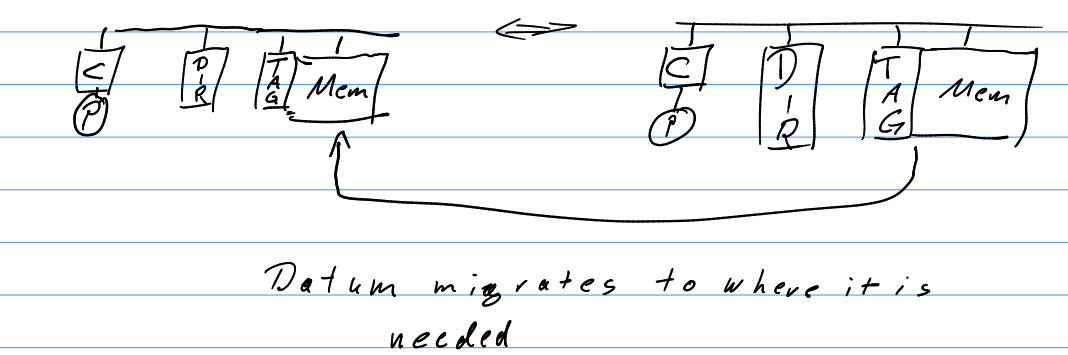 C DIR TAG Mem C DIR TAG Mem
P P
Datum migrates to where it is
needed